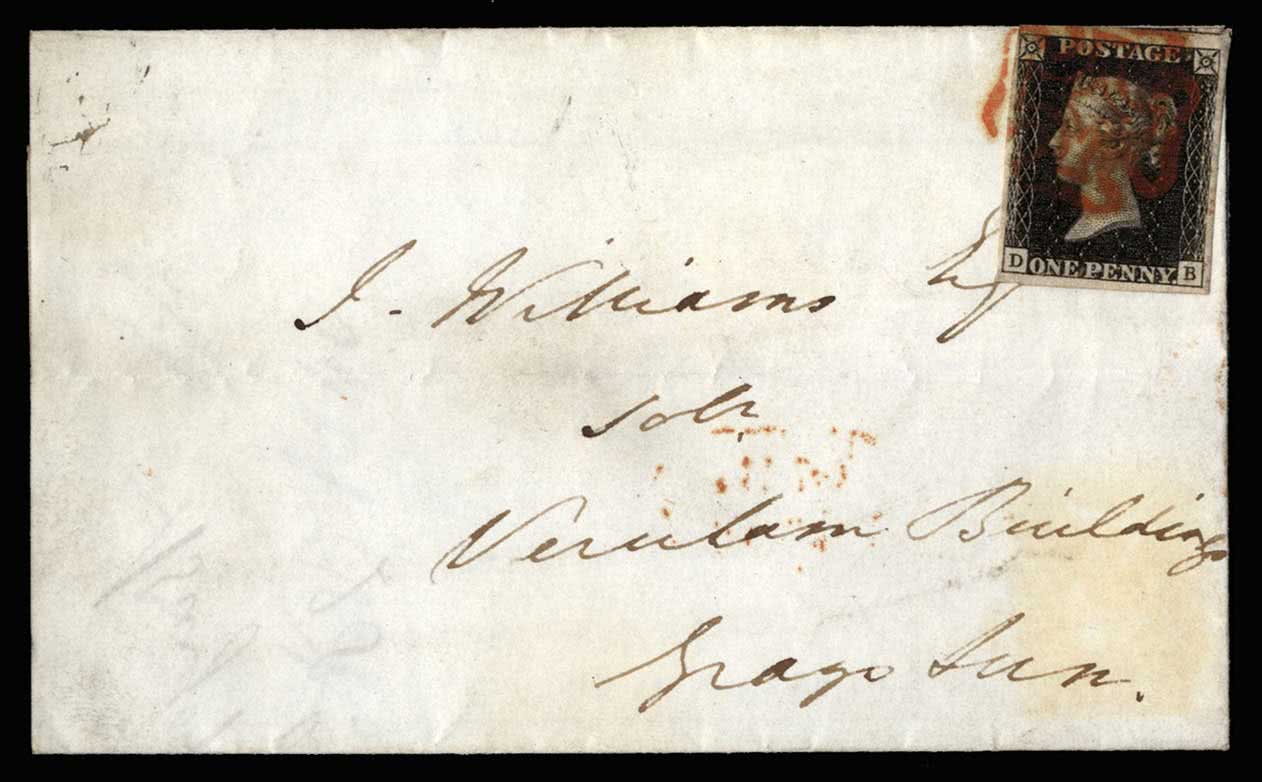 POSTAGE
J. Williams Esq
Solr
Verulam Buildings
Grays Inn.
D ONE PENNY B